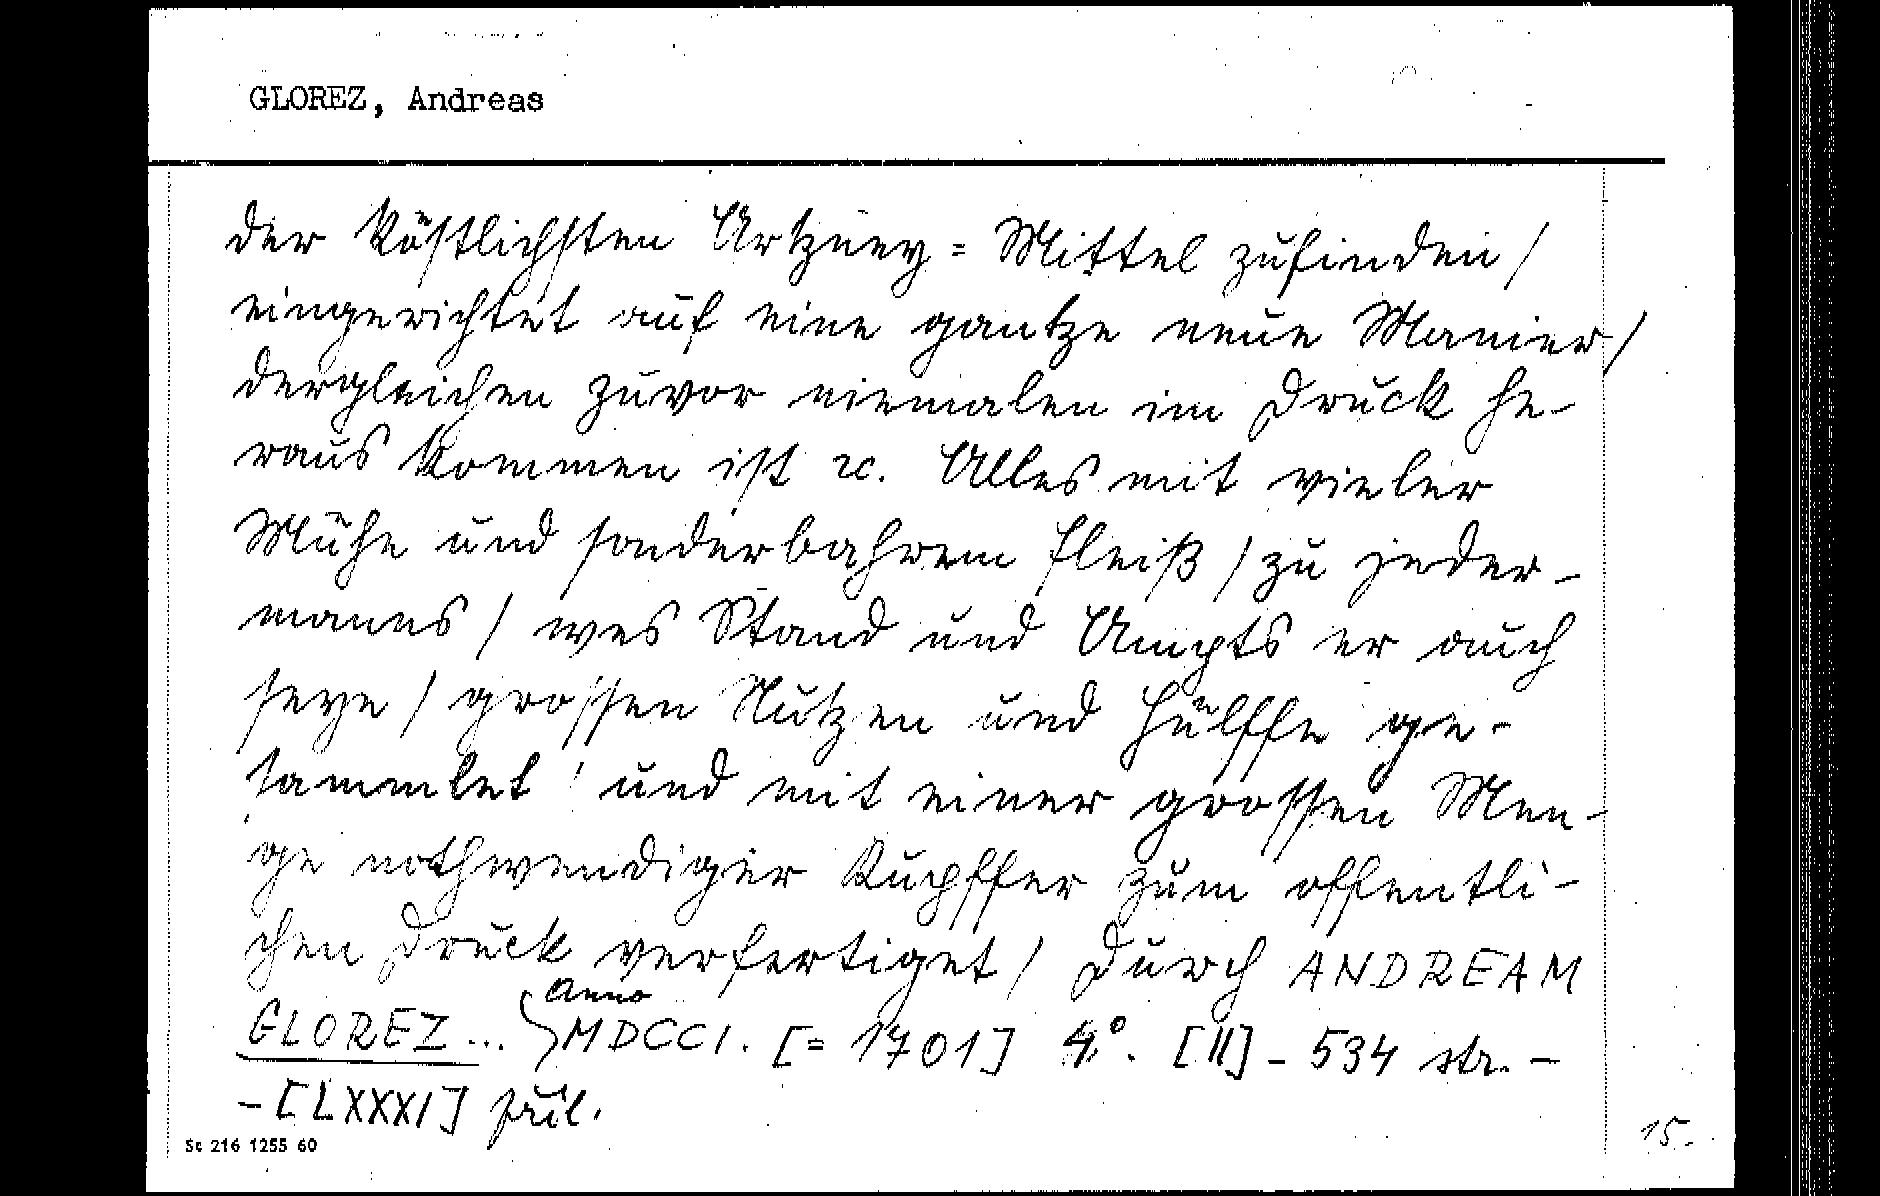 GLOREZ, Andreas
der köstlichsten Artzney = Mittel zufinden /
eingerichtet auf eine gantze neue Manier /
dergleichen zuvor niemalen im Druck he-
raus kommen ist ꝛc. Alles mit vieler
Mühe und sonderbahrem Fleiß / zu jeder-
manns / wes Stand und Ampts er auch
seye / grossen Nutzen und Hülffe ge-
sammlet / und mit einer grossen Men-
ge nothwendiger Kupffer zum offentli-
chen Druck verfertiget / Durch ANDREAM
GLOREZ... Anno MDCCI. [= 1701] 4°. [II] - 534 str. -
- [LXXXI] příl.
Sc 216 1255 60
15.